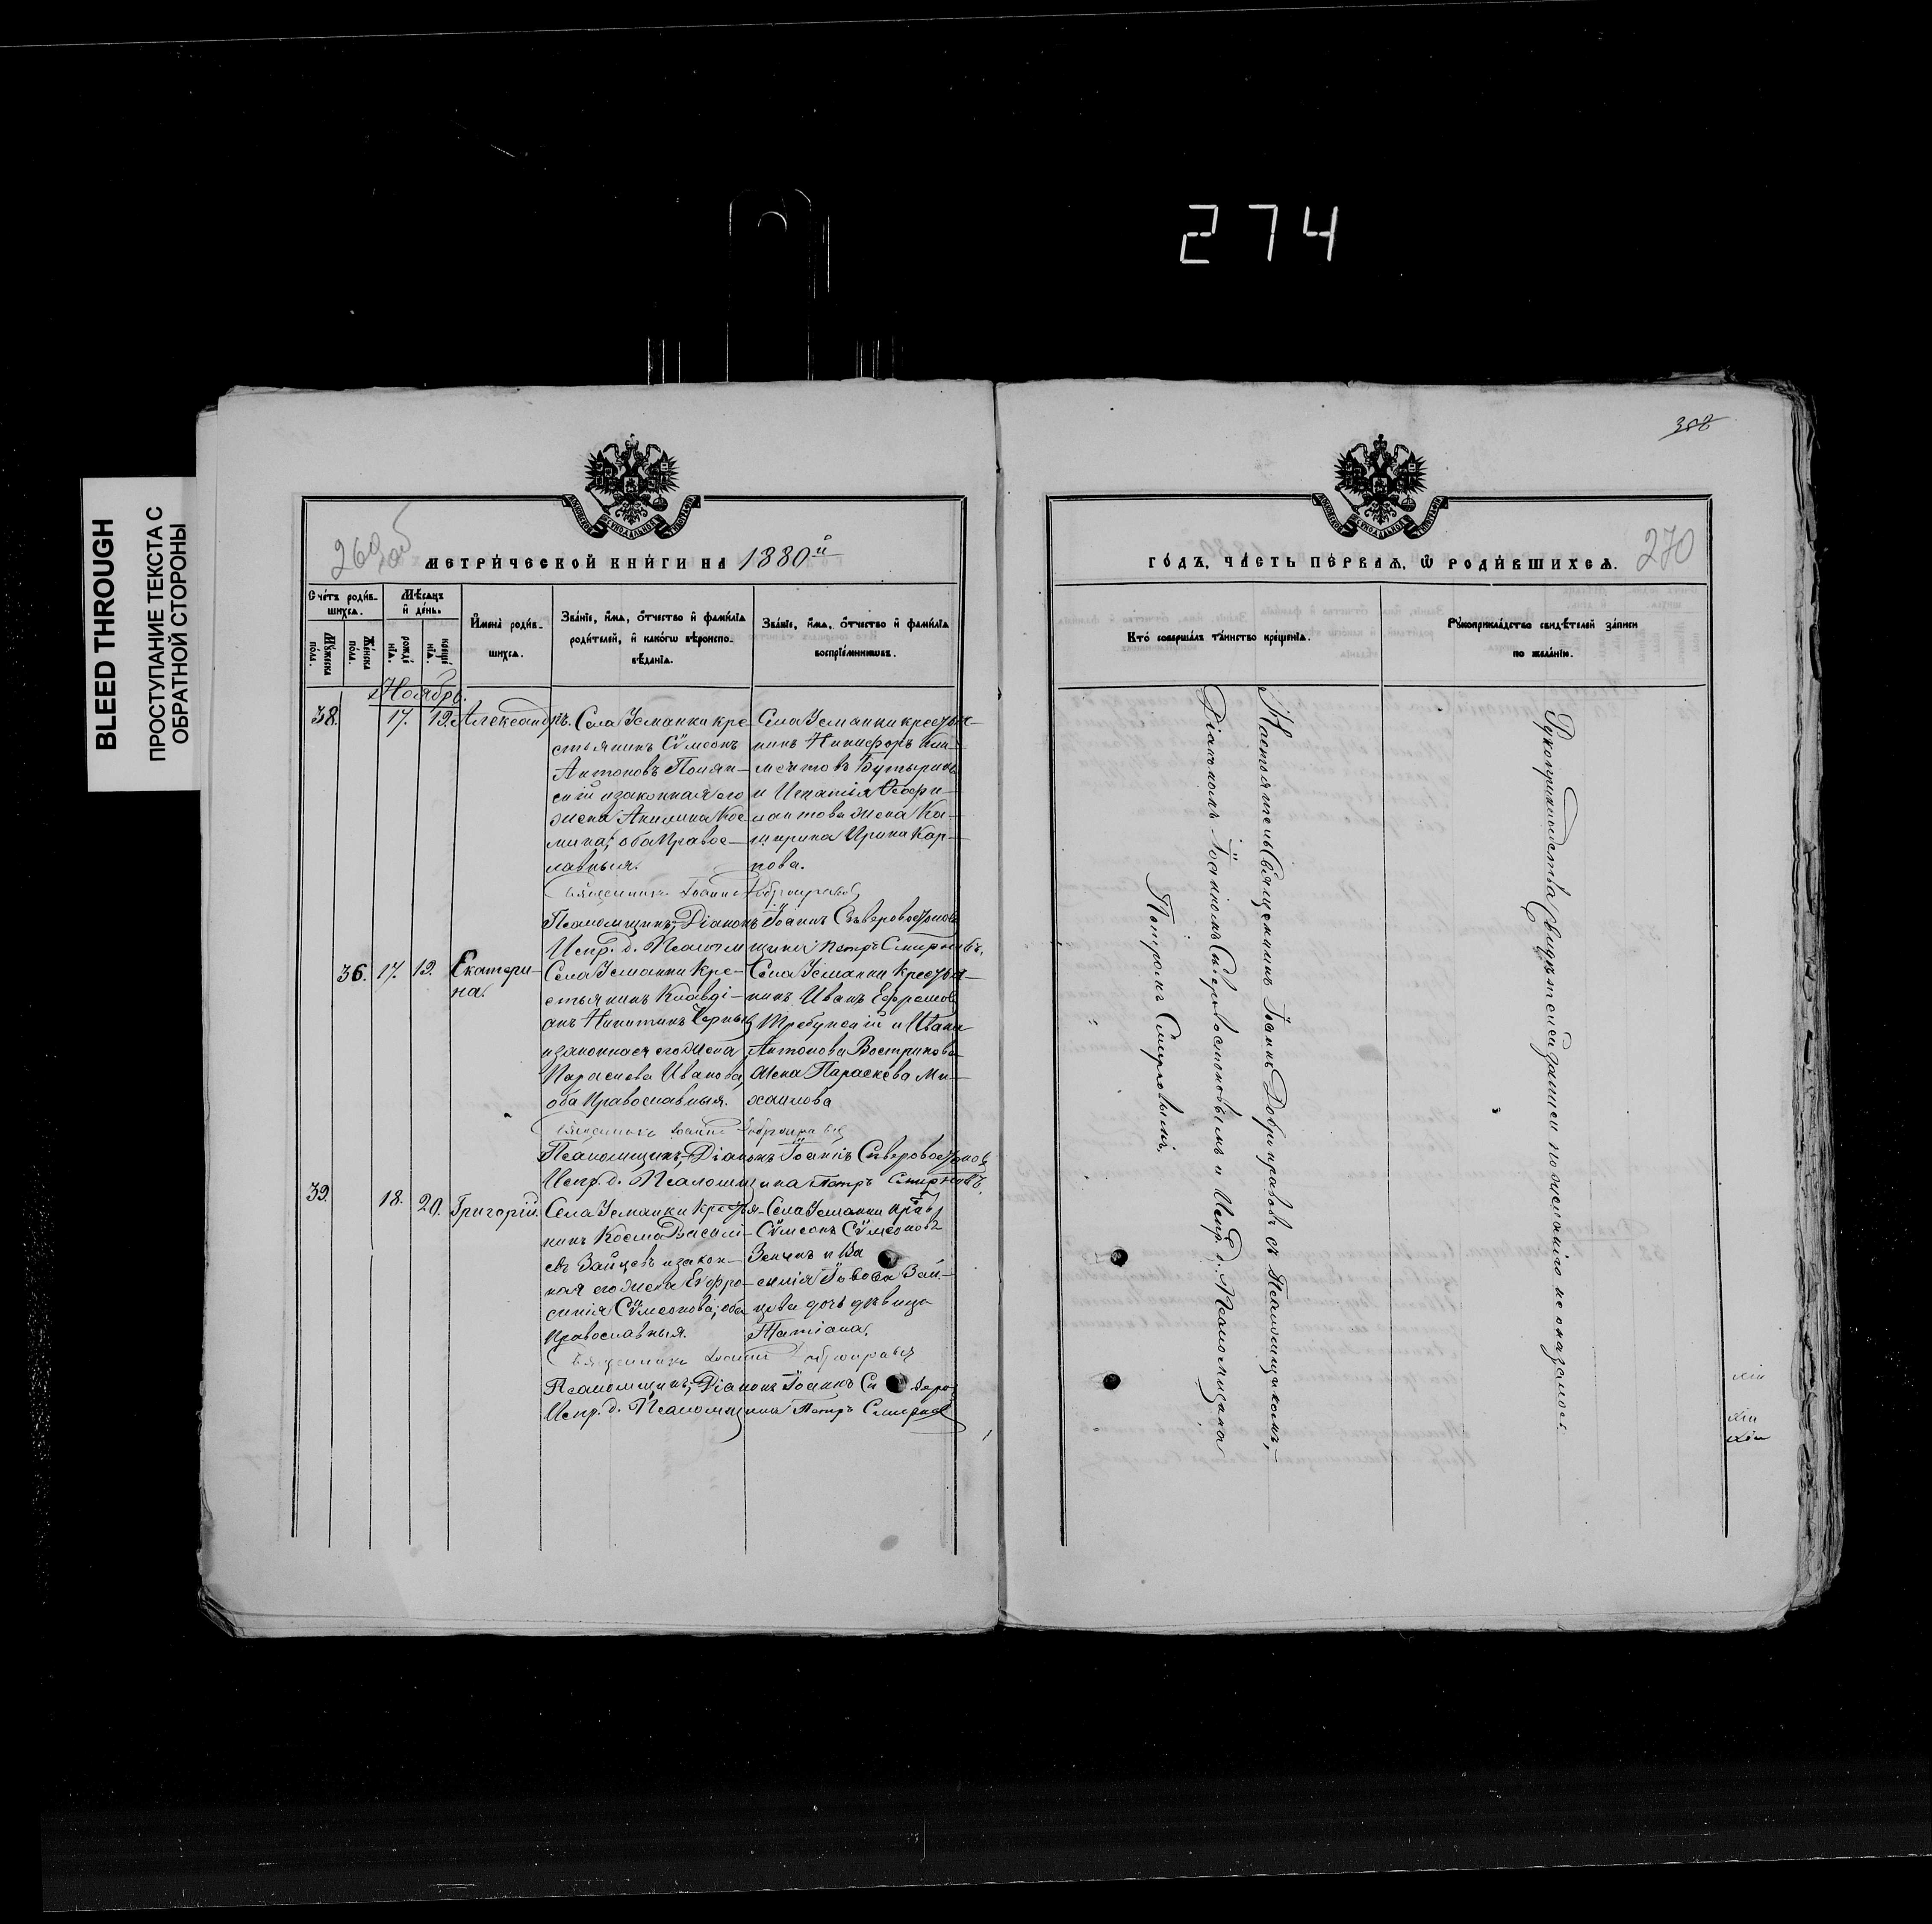 274
BLEED THROUGH
ПРОСТУПАНИЕ ТЕКСТА С
ОБРАТНОЙ СТОРОНЫ
269 об
МЕТРИ́ЧЕСКОЙ КНИ́ГИ НА 1880й
Сче́тъ роди́в-
шихсѧ.
Мѣ́сѧцъ
и҆ де́нь.
Му́жеска
по́ла.
Же́нска
по́ла.
рожде́
нїѧ.
креще́
нїѧ.
И҆мена̀ роди́в-
шихсѧ.
Зва́нїе, и҆́мѧ, ѻ҆́тчество и҆ фамѝлїѧ
роди́телей, и҆ како́гѡ вѣроиспо-
вѣ́данїѧ.
Зва́нїе, и҆́мѧ, ѻ҆́тчество и҆ фамѝлїѧ
воспрїе́мникѡвъ.
Ноябрь.
38. 17. 19. Александръ. Села Усманки кре-
стьянинъ Сѵмеонъ
Антоновъ
и законная его
жена Акилина Кос-
мина; оба Правос-
лавныя.
Села Усманки крестья-
нинъ Никифоръ Кли-
ментовъ Бутыринъ
и Игнатія Феофи-
лактова жена Ка-
ширина Ирина Кар-
пова.
Священникъ Іоаннъ Доброправовъ
Псаломщикъ, Діаконъ Іоаннъ Сѣверовостоковъ
Испр. д. Псаломщика Петръ Смирновъ.
36. 17. 19. Екатери-
на.
Села Усманки Кре-
стьянинъ Клавді-
анъ Никитинъ Черныхъ
и законная его жена
Параскева Иванова,
оба Православныя.
Села Усманки крестья-
нинъ Иванъ Ефремовъ
Требунскій и Ивана
Антонова Вострикова
жена Параскева Ми-
хаилова
Священникъ Іоаннъ Доброправовъ
Псаломщикъ, Діаконъ Іоаннъ Сѣверовостоковъ
Испр. д. Псаломщика Петръ Смирновъ.
39. 18. 20. Григорій. Села Усманки крестья-
нинъ Косма Василі-
евъ Зайцевъ и закон-
ная его жена Евфро-
синія Сѵмеонова; оба
Православныя.
Села Усманки
Сѵмеонъ Сѵмеоновъ
Зай-
цева дочь дѣвица
Татіана.
Священникъ Іоаннъ Доброправовъ
Псаломщикъ, Діаконъ Іоаннъ
Испр. д. Псаломщика Петръ Смирновъ
358
270
ГО́ДЪ, ЧА́СТЬ ПЕ́РВАѦ, Ѡ҆ РОДИ́ВШИХСѦ.
Кто̀ соверша́лъ та́инство креще́нїѧ.
Рꙋкоприкла́дство свидѣ́телей за́писи
по жела́нїю.
Настоятель Священникъ Іоаннъ Доброправовъ съ Псаломщикомъ,
Діакономъ Іоанномъ Сѣверовостоковымъ и Испр. д. Псаломщика
Петромъ Смирновымъ.
Рукоприкладства свидѣтелей записи по желанію не оказалось.